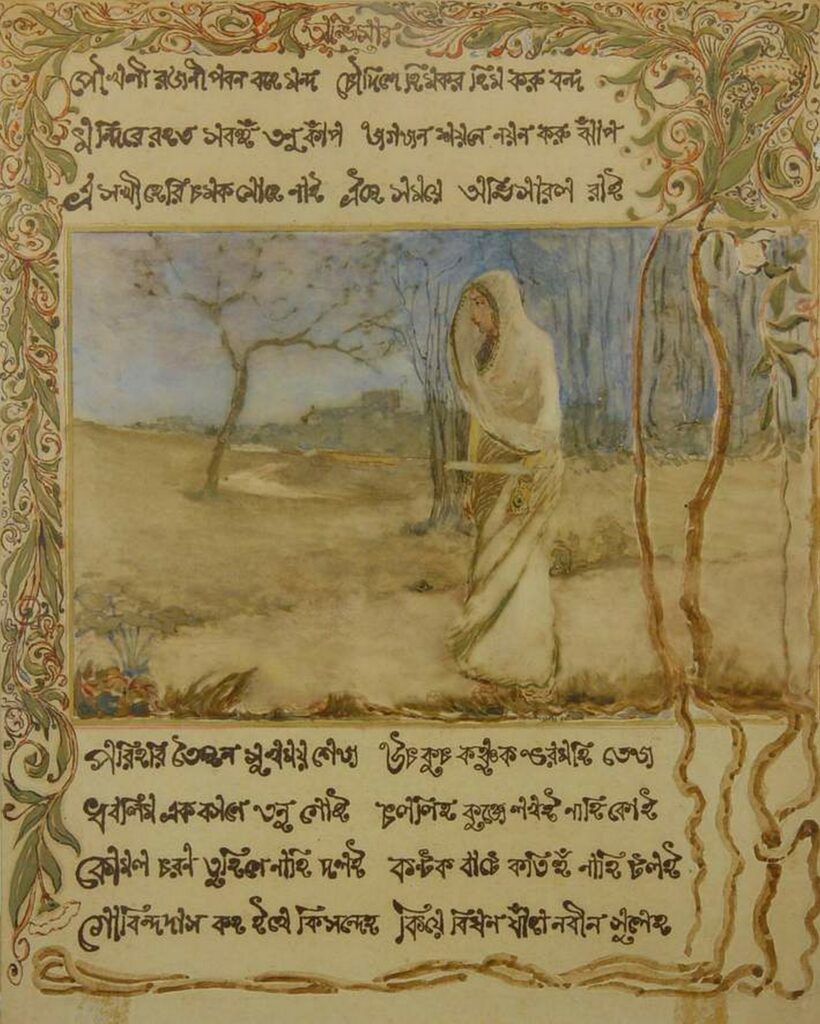 অভিসার
পৌখলী রজনী পবন বহে মন্দ চৌদিশে হিমকর হিম করু বন্দ
মন্দিরে রহত সবহুঁ তনু কাঁপ জগজন শয়নে নয়ন করু ঝাঁপ
এ সখী হেরি চমক মোহে লাই ঐছে সময়ে অভিসারল রাই
পরিহরি তৈছন সুখময় শেজ উচ কুচ কঞ্চুক ভরমহি তেজ
ধবলিম এক বসনে তনু গোই চললিহ কুঞ্জে লখই নাহি কোই
কোমল চরন তুহিনে নাহি দলই কন্টক বাটে কতিহুঁ নাহি টলই
গোবিন্দদাস কহ ইথে কি সন্দেহ কিয়ে বিঘন যাঁহা নবীন সুলেহ